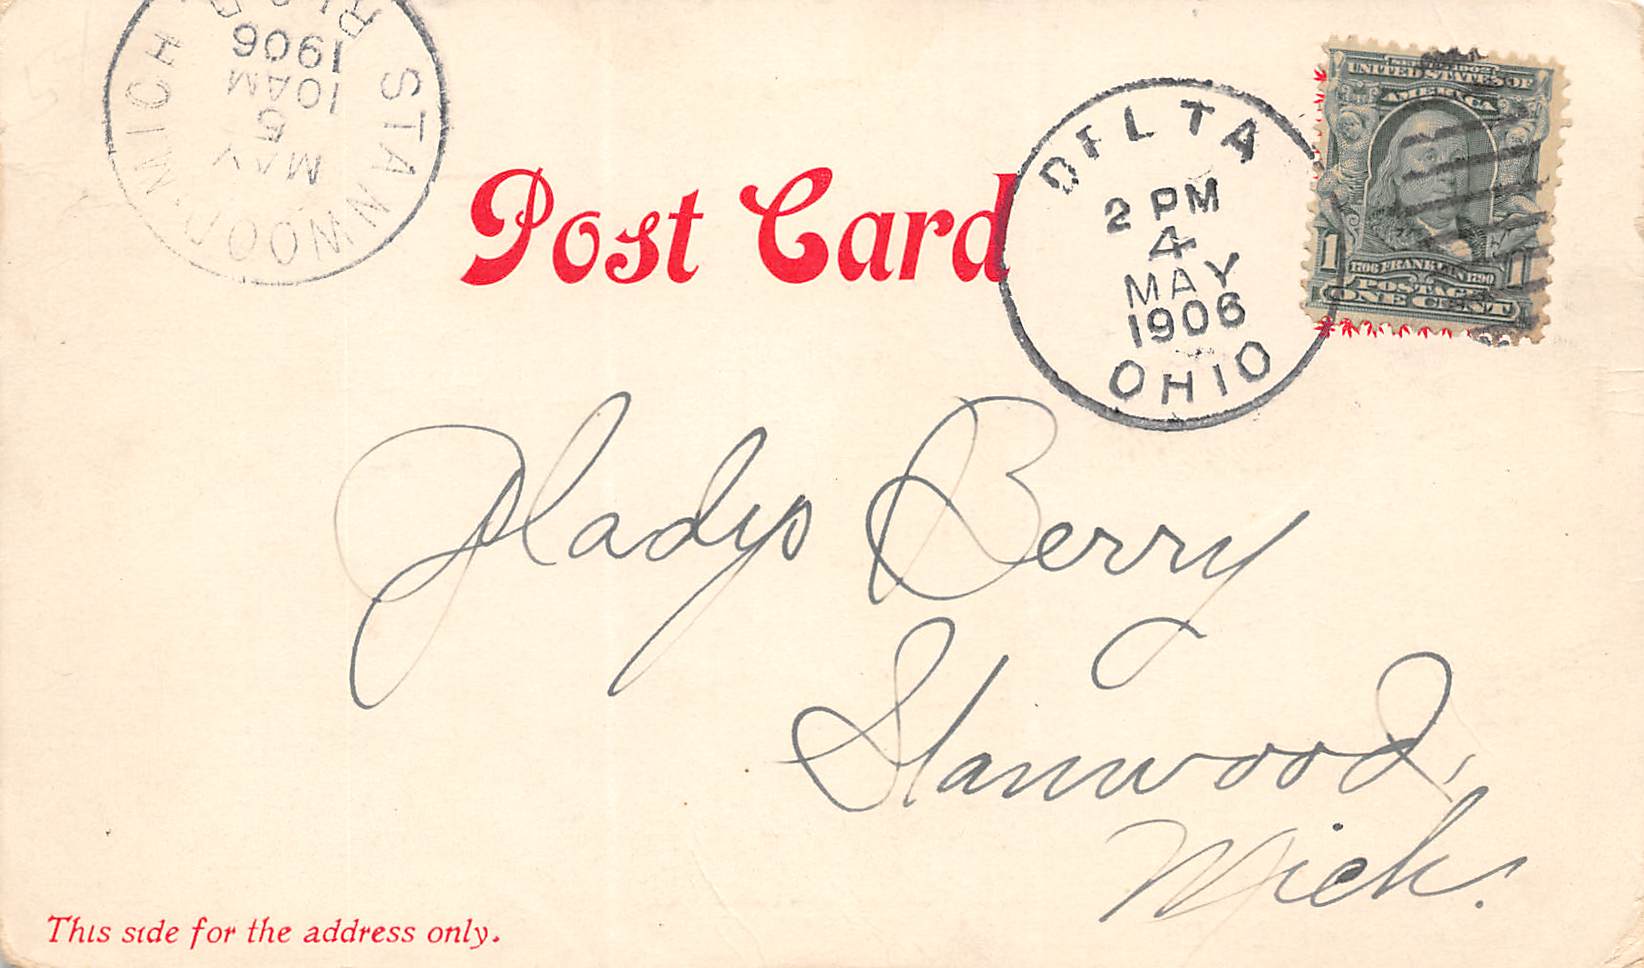 STANWOOD MICH
REC'D
1906
10AM
5
MAY
Post Card
DELTA
2 PM
4
MAY
1906
OHIO
SERIES 1902
UNITED STATES OF
AMERICA
1 1706 FRANKLIN 1790 1
POSTAGE
ONE CENT
Gladys Berry
Stanwood,
Mich.
This side for the address only.